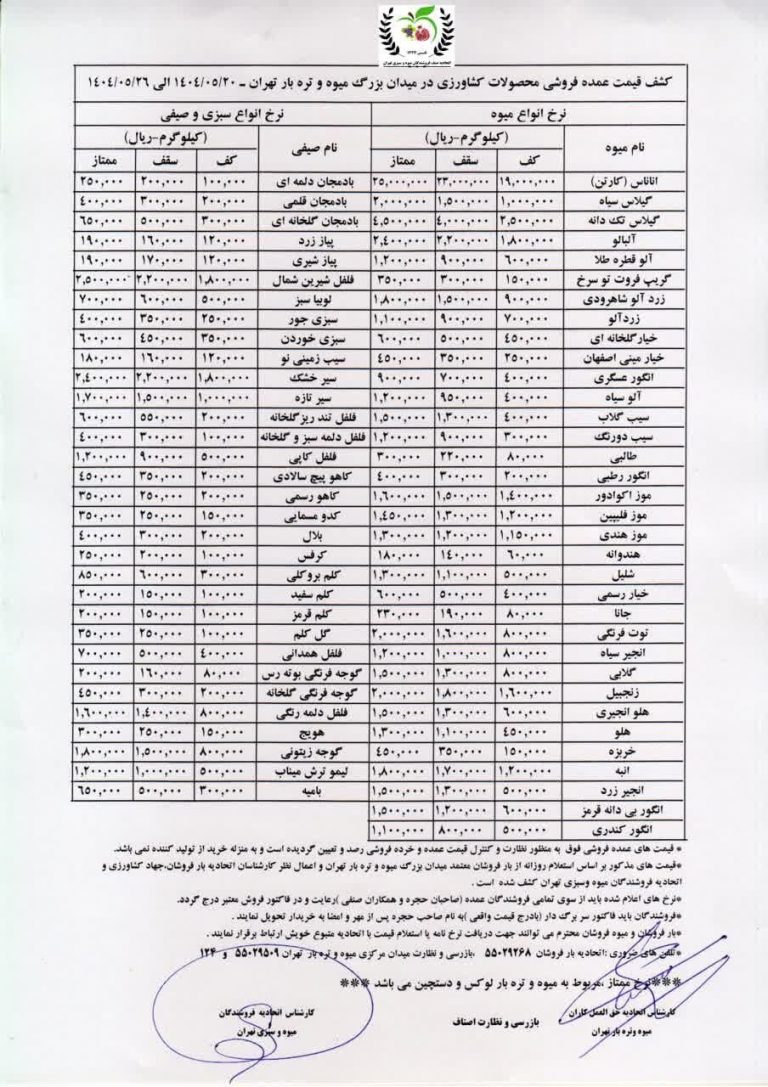 اتحادیه صنف فروشندگان میوه و سبزی تهران
کشف قیمت عمده فروشی محصولات کشاورزی در میدان بزرگ میوه و تره بار تهران ـ ۱۴۰۴/۰۵/۲۰ الی ۱۴۰۴/۰۵/۲۶
نرخ انواع میوه نرخ انواع سبزی و صیفی
نام میوه (کیلوگرم-ریال) نام صیفی (کیلوگرم-ریال)
کف سقف ممتاز کف سقف ممتاز
اناناس (کارتن) ۱۹,۰۰۰,۰۰۰ ۲۳,۰۰۰,۰۰۰ ۲۵,۰۰۰,۰۰۰ بادمجان دلمه ای ۱۰۰,۰۰۰ ۲۰۰,۰۰۰ ۲۵۰,۰۰۰
گیلاس سیاه ۱,۰۰۰,۰۰۰ ۱,۵۰۰,۰۰۰ ۲,۰۰۰,۰۰۰ بادمجان قلمی ۲۰۰,۰۰۰ ۳۰۰,۰۰۰ ۴۰۰,۰۰۰
گیلاس تک دانه ۲,۵۰۰,۰۰۰ ۴,۰۰۰,۰۰۰ ۴,۵۰۰,۰۰۰ بادمجان گلخانه ای ۳۰۰,۰۰۰ ۵۰۰,۰۰۰ ۶۵۰,۰۰۰
آلبالو ۱,۸۰۰,۰۰۰ ۲,۲۰۰,۰۰۰ ۲,۴۰۰,۰۰۰ پیاز زرد ۱۲۰,۰۰۰ ۱۶۰,۰۰۰ ۱۹۰,۰۰۰
آلو قطره طلا ۶۰۰,۰۰۰ ۹۰۰,۰۰۰ ۱,۲۰۰,۰۰۰ پیاز شیری ۱۲۰,۰۰۰ ۱۷۰,۰۰۰ ۱۹۰,۰۰۰
گریپ فروت تو سرخ ۱۵۰,۰۰۰ ۳۰۰,۰۰۰ ۳۵۰,۰۰۰ فلفل شیرین شمال ۱,۸۰۰,۰۰۰ ۲,۲۰۰,۰۰۰ ۲,۵۰۰,۰۰۰
زرد آلو شاهرودی ۹۰۰,۰۰۰ ۱,۵۰۰,۰۰۰ ۱,۸۰۰,۰۰۰ لوبیا سبز ۵۰۰,۰۰۰ ۶۰۰,۰۰۰ ۷۰۰,۰۰۰
زردآلو ۷۰۰,۰۰۰ ۹۰۰,۰۰۰ ۱,۱۰۰,۰۰۰ سبزی جور ۲۵۰,۰۰۰ ۳۵۰,۰۰۰ ۴۰۰,۰۰۰
خیارگلخانه ای ۴۵۰,۰۰۰ ۵۰۰,۰۰۰ ۶۰۰,۰۰۰ سبزی خوردن ۳۵۰,۰۰۰ ۴۵۰,۰۰۰ ۶۰۰,۰۰۰
خیار مینی اصفهان ۲۵۰,۰۰۰ ۳۵۰,۰۰۰ ۴۵۰,۰۰۰ سیب زمینی نو ۱۲۰,۰۰۰ ۱۶۰,۰۰۰ ۱۸۰,۰۰۰
انگور عسگری ۴۰۰,۰۰۰ ۷۰۰,۰۰۰ ۹۰۰,۰۰۰ سیر خشک ۱,۸۰۰,۰۰۰ ۲,۲۰۰,۰۰۰ ۲,۴۰۰,۰۰۰
آلو سیاه ۴۰۰,۰۰۰ ۹۵۰,۰۰۰ ۱,۲۰۰,۰۰۰ سیر تازه ۱,۰۰۰,۰۰۰ ۱,۵۰۰,۰۰۰ ۱,۷۰۰,۰۰۰
سیب گلاب ۴۰۰,۰۰۰ ۱,۳۰۰,۰۰۰ ۱,۵۰۰,۰۰۰ فلفل تند ریزگلخانه ۲۰۰,۰۰۰ ۵۵۰,۰۰۰ ۶۰۰,۰۰۰
سیب دورنگ ۳۰۰,۰۰۰ ۹۰۰,۰۰۰ ۱,۲۰۰,۰۰۰ فلفل دلمه سبز و گلخانه ۱۰۰,۰۰۰ ۳۰۰,۰۰۰ ۴۰۰,۰۰۰
طالبی ۸۰,۰۰۰ ۲۲۰,۰۰۰ ۳۰۰,۰۰۰ فلفل کاپی ۵۰۰,۰۰۰ ۹۰۰,۰۰۰ ۱,۲۰۰,۰۰۰
انگور رطبی ۲۰۰,۰۰۰ ۳۰۰,۰۰۰ ۴۰۰,۰۰۰ کاهو پیچ سالادی ۲۰۰,۰۰۰ ۳۵۰,۰۰۰ ۴۵۰,۰۰۰
موز اکوادور ۱,۴۰۰,۰۰۰ ۱,۵۰۰,۰۰۰ ۱,۶۰۰,۰۰۰ کاهو رسمی ۲۰۰,۰۰۰ ۲۵۰,۰۰۰ ۳۵۰,۰۰۰
موز فلیپین ۱,۲۰۰,۰۰۰ ۱,۳۰۰,۰۰۰ ۱,۴۵۰,۰۰۰ کدو مسمایی ۱۵۰,۰۰۰ ۲۵۰,۰۰۰ ۳۵۰,۰۰۰
موز هندی ۱,۱۵۰,۰۰۰ ۱,۲۰۰,۰۰۰ ۱,۳۰۰,۰۰۰ بلال ۲۰۰,۰۰۰ ۳۰۰,۰۰۰ ۴۰۰,۰۰۰
هندوانه ۶۰,۰۰۰ ۱۴۰,۰۰۰ ۱۸۰,۰۰۰ کرفس ۱۰۰,۰۰۰ ۲۰۰,۰۰۰ ۲۵۰,۰۰۰
شلیل ۵۰۰,۰۰۰ ۱,۱۰۰,۰۰۰ ۱,۳۰۰,۰۰۰ کلم بروکلی ۳۰۰,۰۰۰ ۶۰۰,۰۰۰ ۸۵۰,۰۰۰
خیار رسمی ۴۰۰,۰۰۰ ۵۰۰,۰۰۰ ۶۰۰,۰۰۰ کلم سفید ۱۰۰,۰۰۰ ۱۵۰,۰۰۰ ۲۰۰,۰۰۰
جانا ۸۰,۰۰۰ ۱۹۰,۰۰۰ ۲۳۰,۰۰۰ کلم قرمز ۱۰۰,۰۰۰ ۱۵۰,۰۰۰ ۲۰۰,۰۰۰
توت فرنگی ۸۰۰,۰۰۰ ۱,۶۰۰,۰۰۰ ۲,۰۰۰,۰۰۰ گل کلم ۱۰۰,۰۰۰ ۲۵۰,۰۰۰ ۳۵۰,۰۰۰
انجیر سیاه ۸۰۰,۰۰۰ ۱,۰۰۰,۰۰۰ ۱,۲۰۰,۰۰۰ فلفل همدانی ۴۰۰,۰۰۰ ۵۰۰,۰۰۰ ۷۰۰,۰۰۰
گلابی ۸۰۰,۰۰۰ ۱,۳۰۰,۰۰۰ ۱,۵۰۰,۰۰۰ گوجه فرنگی بوته رس ۸۰,۰۰۰ ۱۶۰,۰۰۰ ۲۰۰,۰۰۰
زنجبیل ۱,۶۰۰,۰۰۰ ۱,۸۰۰,۰۰۰ ۲,۰۰۰,۰۰۰ گوجه فرنگی گلخانه ۲۰۰,۰۰۰ ۳۰۰,۰۰۰ ۴۵۰,۰۰۰
هلو انجیری ۶۰۰,۰۰۰ ۱,۳۰۰,۰۰۰ ۱,۵۰۰,۰۰۰ فلفل دلمه رنگی ۸۰۰,۰۰۰ ۱,۴۰۰,۰۰۰ ۱,۶۰۰,۰۰۰
هلو ۴۵۰,۰۰۰ ۱,۱۰۰,۰۰۰ ۱,۳۰۰,۰۰۰ هویج ۱۵۰,۰۰۰ ۲۵۰,۰۰۰ ۳۰۰,۰۰۰
خربزه ۱۵۰,۰۰۰ ۳۵۰,۰۰۰ ۴۵۰,۰۰۰ گوجه زیتونی ۸۰۰,۰۰۰ ۱,۵۰۰,۰۰۰ ۱,۸۰۰,۰۰۰
انبه ۱,۲۰۰,۰۰۰ ۱,۷۰۰,۰۰۰ ۱,۸۰۰,۰۰۰ لیمو ترش میناب ۵۰۰,۰۰۰ ۱,۰۰۰,۰۰۰ ۱,۲۰۰,۰۰۰
انجیر زرد ۵۰۰,۰۰۰ ۱,۳۰۰,۰۰۰ ۱,۵۰۰,۰۰۰ بامیه ۳۰۰,۰۰۰ ۵۰۰,۰۰۰ ۶۵۰,۰۰۰
انگور بی دانه قرمز ۶۰۰,۰۰۰ ۱,۲۰۰,۰۰۰ ۱,۵۰۰,۰۰۰
انگور کندری ۵۰۰,۰۰۰ ۸۰۰,۰۰۰ ۱,۱۰۰,۰۰۰
* قیمت های عمده فروشی فوق به منظور نظارت و کنترل قیمت عمده و خرده فروشی رصد و تعیین گردیده است و به منزله خرید از تولید کننده نمی باشد.
*قیمت های مذکور بر اساس استعلام روزانه از بار فروشان معتمد میدان بزرگ میوه و تره بار تهران و اعمال نظر کارشناسان اتحادیه بار فروشان،جهاد کشاورزی و
اتحادیه فروشندگان میوه وسبزی تهران کشف شده است .
*نرخ های اعلام شده باید از سوی تمامی فروشندگان عمده (صاحبان حجره و همکاران صنفی )رعایت و در فاکتور فروش معتبر درج گردد.
*فروشندگان باید فاکتور سر برگ دار (بادرج قیمت واقعی )به نام صاحب حجره پس از مهر و امضا به خریدار تحویل نمایند .
*بار فروشان و میوه فروشان محترم می توانند جهت دریافت نرخ نامه یا استعلام قیمت با اتحادیه متبوع خویش ارتباط برقرار نمایند .
*تلفن های ضروری :اتحادیه بار فروشان ۵۵۰۲۹۲۶۸ ،بازرسی و نظارت میدان مرکزی میوه و تره بار تهران ۵۵۰۲۹۵۰۹ و ۱۲۴
***نرخ ممتاز ،مربوط به میوه و تره بار لوکس و دستچین می باشد ***
کارشناس اتحادیه حق العمل کاران بازرسی و نظارت اصناف کارشناس اتحادیه فروشندگان
میوه وتره بار تهران میوه و سبزی تهران